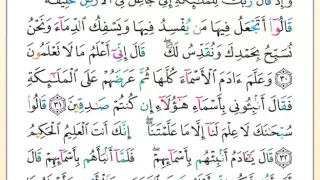 وَإِذْ قَالَ رَبُّكَ لِلْمَلَٰٓئِكَةِ إِنِّي جَاعِلٌ فِي ٱلْأَرْضِ خَلِيفَةً
قَالُوٓا۟ أَتَجْعَلُ فِيهَا مَن يُفْسِدُ فِيهَا وَيَسْفِكُ ٱلدِّمَآءَ وَنَحْنُ
نُسَبِّحُ بِحَمْدِكَ وَنُقَدِّسُ لَكَ ۖ قَالَ إِنِّىٓ أَعْلَمُ مَا لَا تَعْلَمُونَ
٣٠ وَعَلَّمَ ءَادَمَ ٱلْأَسْمَآءَ كُلَّهَا ثُمَّ عَرَضَهُمْ عَلَى ٱلْمَلَٰٓئِكَةِ
فَقَالَ أَنۢبِـُٔونِى بِأَسْمَآءِ هَٰٓؤُلَآءِ إِن كُنتُمْ صَٰدِقِينَ ٣١ قَالُوا۟
سُبْحَٰنَكَ لَا عِلْمَ لَنَآ إِلَّا مَا عَلَّمْتَنَآ ۖ إِنَّكَ أَنتَ ٱلْعَلِيمُ ٱلْحَكِيمُ
٣٢ قَالَ يَٰٓـَٔادَمُ أَنۢبِئْهُم بِأَسْمَآئِهِمْ ۖ فَلَمَّآ أَنۢبَأَهُم بِأَسْمَآئِهِمْ قَالَ